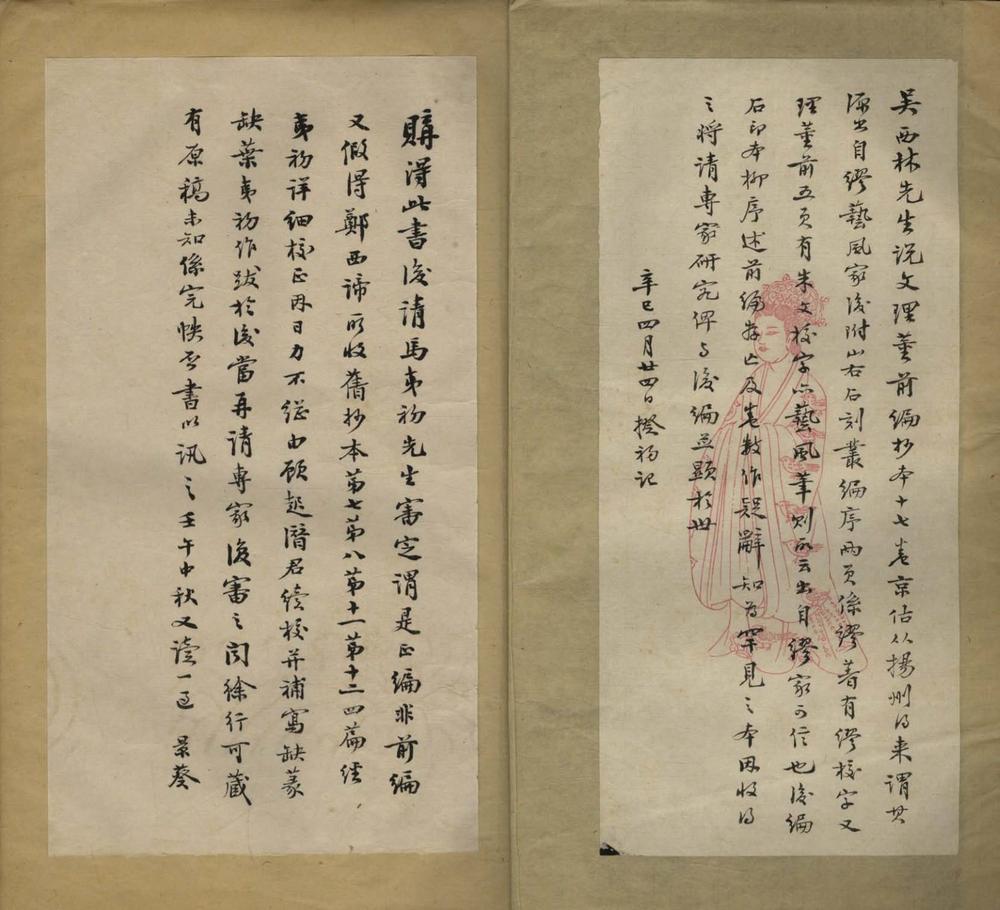 吴西林先生说文理董前编抄本十七卷京估从揚州得来谓其
源出自繆藝風家後附山右石刻叢編序兩頁係繆著有繆校字又
理董前五頁有朱文校字亦藝風筆则所云出自繆家可信也後編
石印本柳序述前編存亡及卷数作疑辭知為罕見之本因收得
之将请專家研究俾与後編並顯於世
辛巳四月廿四日揆初记
購得此書後请馬夷初先生審定謂是正編非前編
又假得鄭西諦所收舊抄本第七第八第十一第十二四篇经
夷初详细校正因日力不继由顾起潛君续校并補寫缺篆
缺葉夷初作跋於後當再请專家復審之闻徐行可藏
有原稿未知係完帙否書以訊之壬午中秋又读一过 景葵